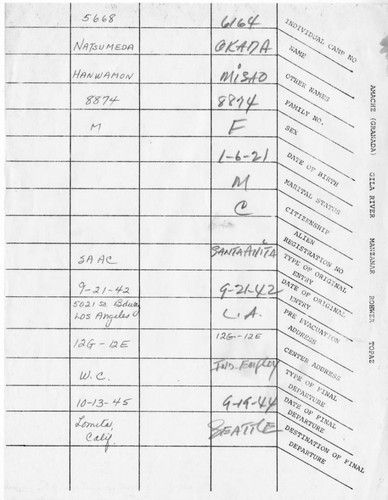 5668 6164 INDIVIDUAL CAMP NO
NATSUMEDA OKADA NAME
HANWAMON MISAO OTHER NAMES
8874 8874 FAMILY NO.
M F SEX
1-6-21 DATE OF BIRTH
M MARITAL STATUS
C CITIZENSHIP
ALIEN
REGISTRATION NO
SAAC SANTA ANITA TYPE OF ORIGINAL
ENTRY
9-21-42 9-21-42 DATE OF ORIGINAL
ENTRY
5021 So
Los Angeles L.A. PRE EVACUATION
ADDRESS
12G-12E 12G-12E CENTER ADDRESS
W.C. TYPE OF FINAL
DEPARTURE
10-13-45 9-19-44 DATE OF FINAL
DEPARTURE
Lomita,
Calif SEATTLE DESTINATION OF FINAL
DEPARTURE
AMACHE (GRANADA) GILA RIVER MANZANAR ROHWER TOPAZ